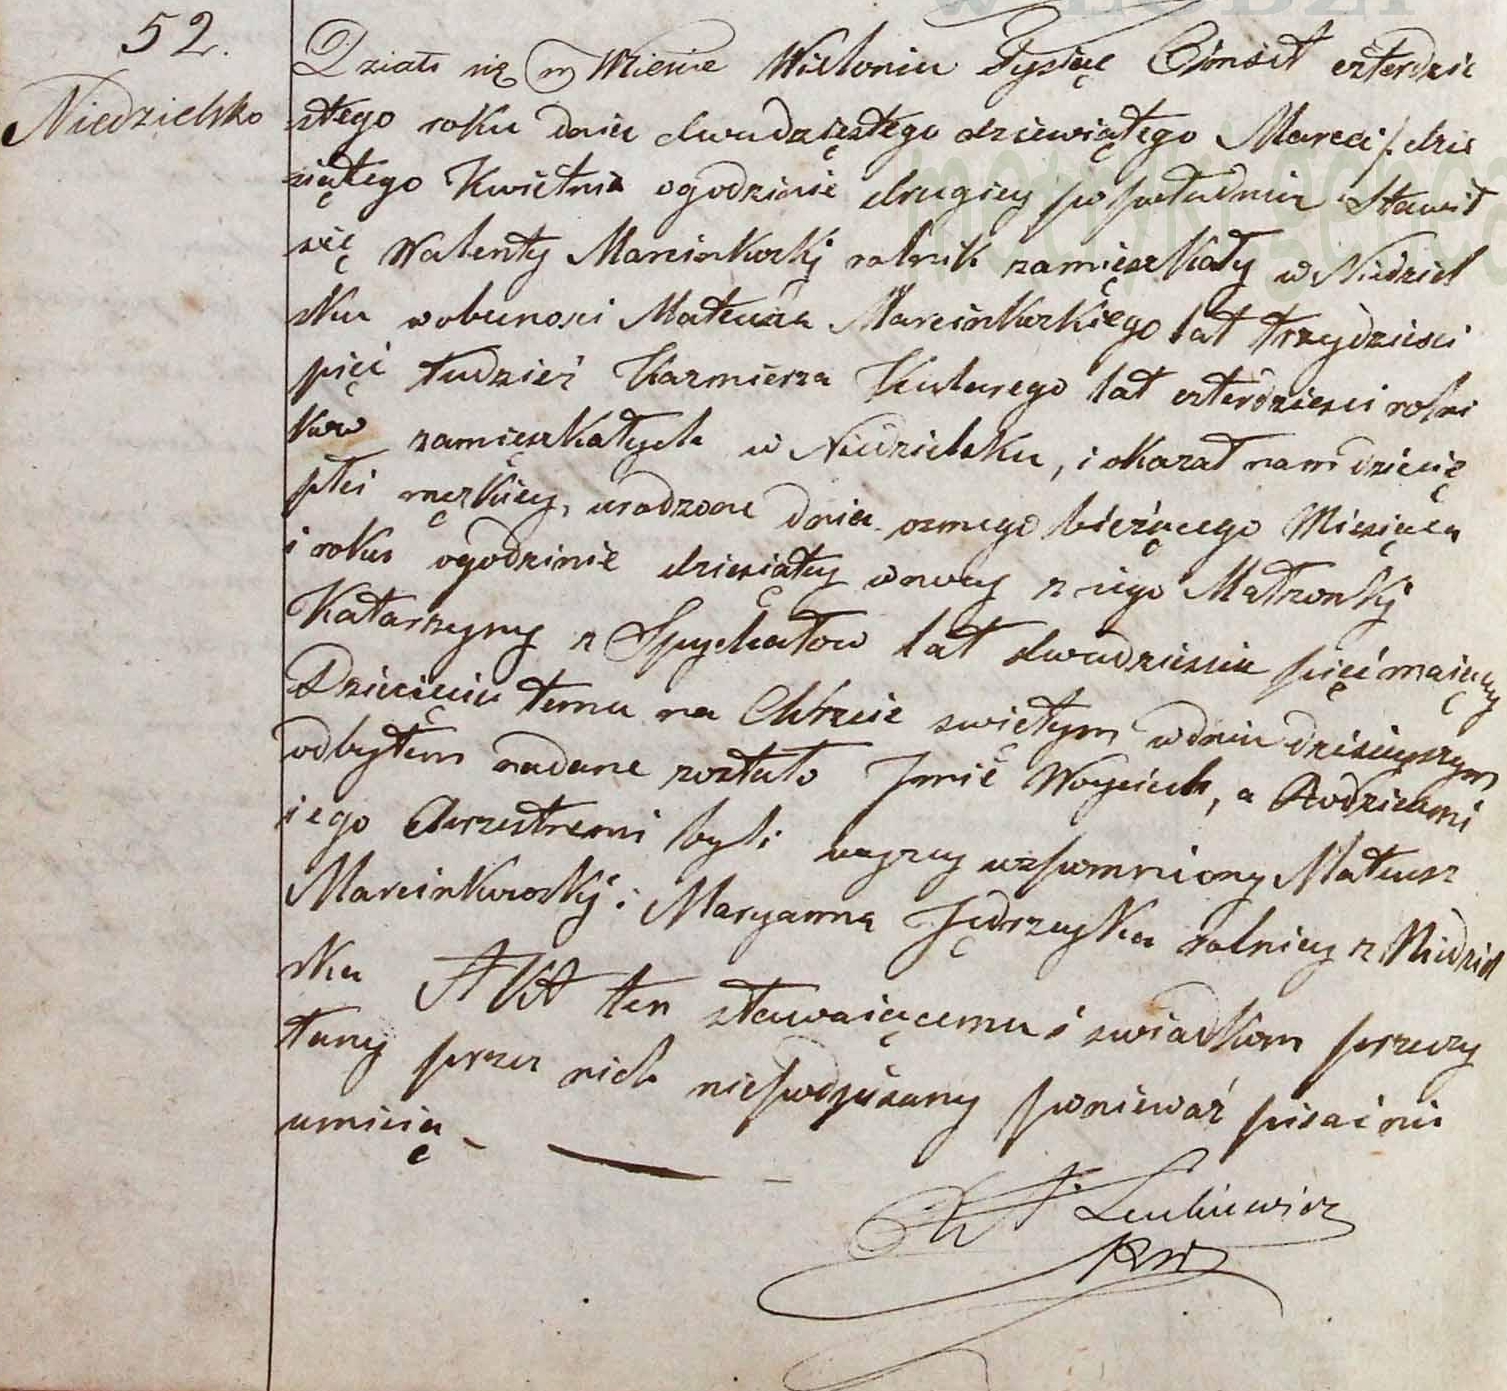 52.
Niedzielsko
Działo się w Mieście Wieluniu Tysiąc Ośmset czterdzie
stego roku dnia dwudziestego dziewiątego Marca /: dzie
siątego Kwietnia o godzinie drugiey po południu Stawił
się Walenty Marcinkoski rolnik zamięszkały w Niedziel
sku w obecnosci Mateusza Marcinkoskiego lat trzydziesci
pięć tudzież Kazmierza Kularego lat czterdziesci rolni
kow zamięszkałych w Niedzielsku, i okazał nam dziecię
płci męzkiey, urodzone dnia osmego bieżącego Miesiąca
i roku o godzinie dziesiątey w nocy z iego Małżonki
Katarzyny z Spychałow lat dwadziescia pięć maiący
Dziecięciu temu na Chrzcie swiętym w dniu dzisieyszym
odbytem nadane zostało Jmie Woyciech, a Rodzicami
iego Chrzestnemi byli wyzey wspomniony Mateusz
Marcinkoski i Maryanna Jędrzeyka rolnicy z Niedziel
ska AKt ten stawaiącemu i swiadkom przeczy
tany przez nich niepodpisany ponieważ pisać nie
umieią